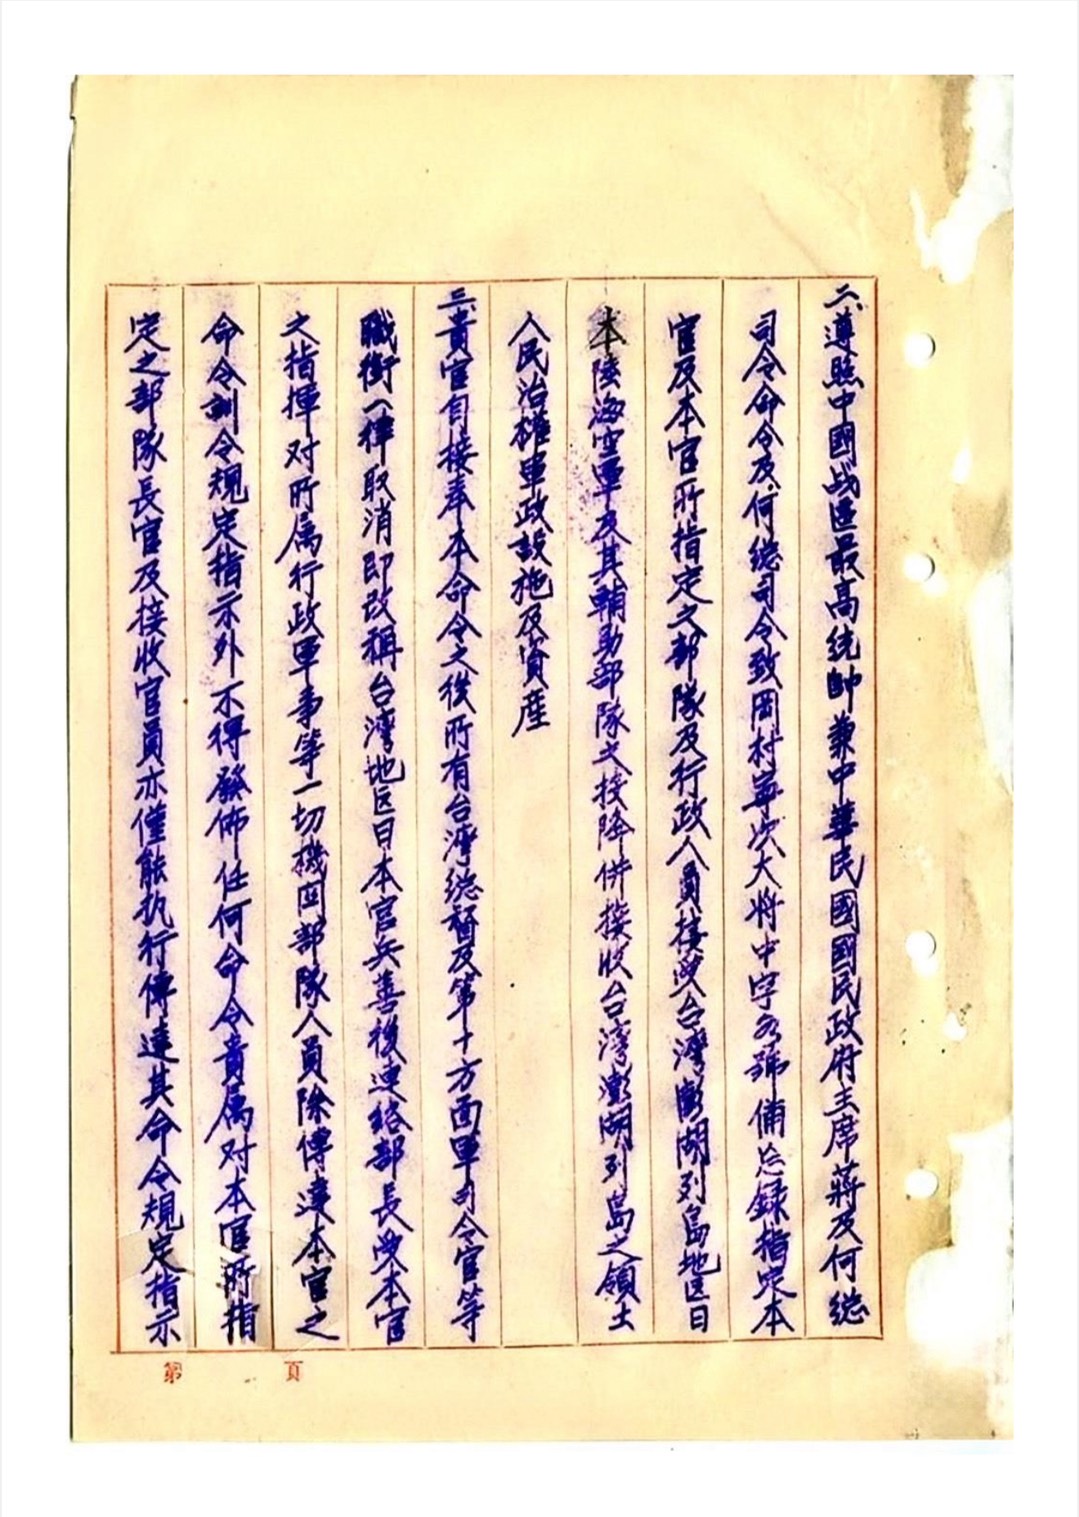 二、遵照中國战區最高統帥兼中華民國國民政府主席蔣及何總
司令命令及何總司令致岡村寧次大将中字各號備忘録指定本
官及本官所指定之部隊及行政人員接受台灣澎湖列島地區日
本陸海空軍及其輔助部隊之投降併接收台灣澎湖列島之領土
人民治權軍政設施及資産
三、貴官自接奉本命令之後所有台灣總督及第十方面軍司令官等
職銜一律取消即改稱台湾地区日本官兵善後連絡部長受本官
之指揮对所属行政軍事等一切機関部隊人員除傳達本官之
命令訓令規定指示外不得發佈任何命令貴属对本官所指
定之部隊長官及接收官員亦僅能执行傳達其命令規定指示
第 頁